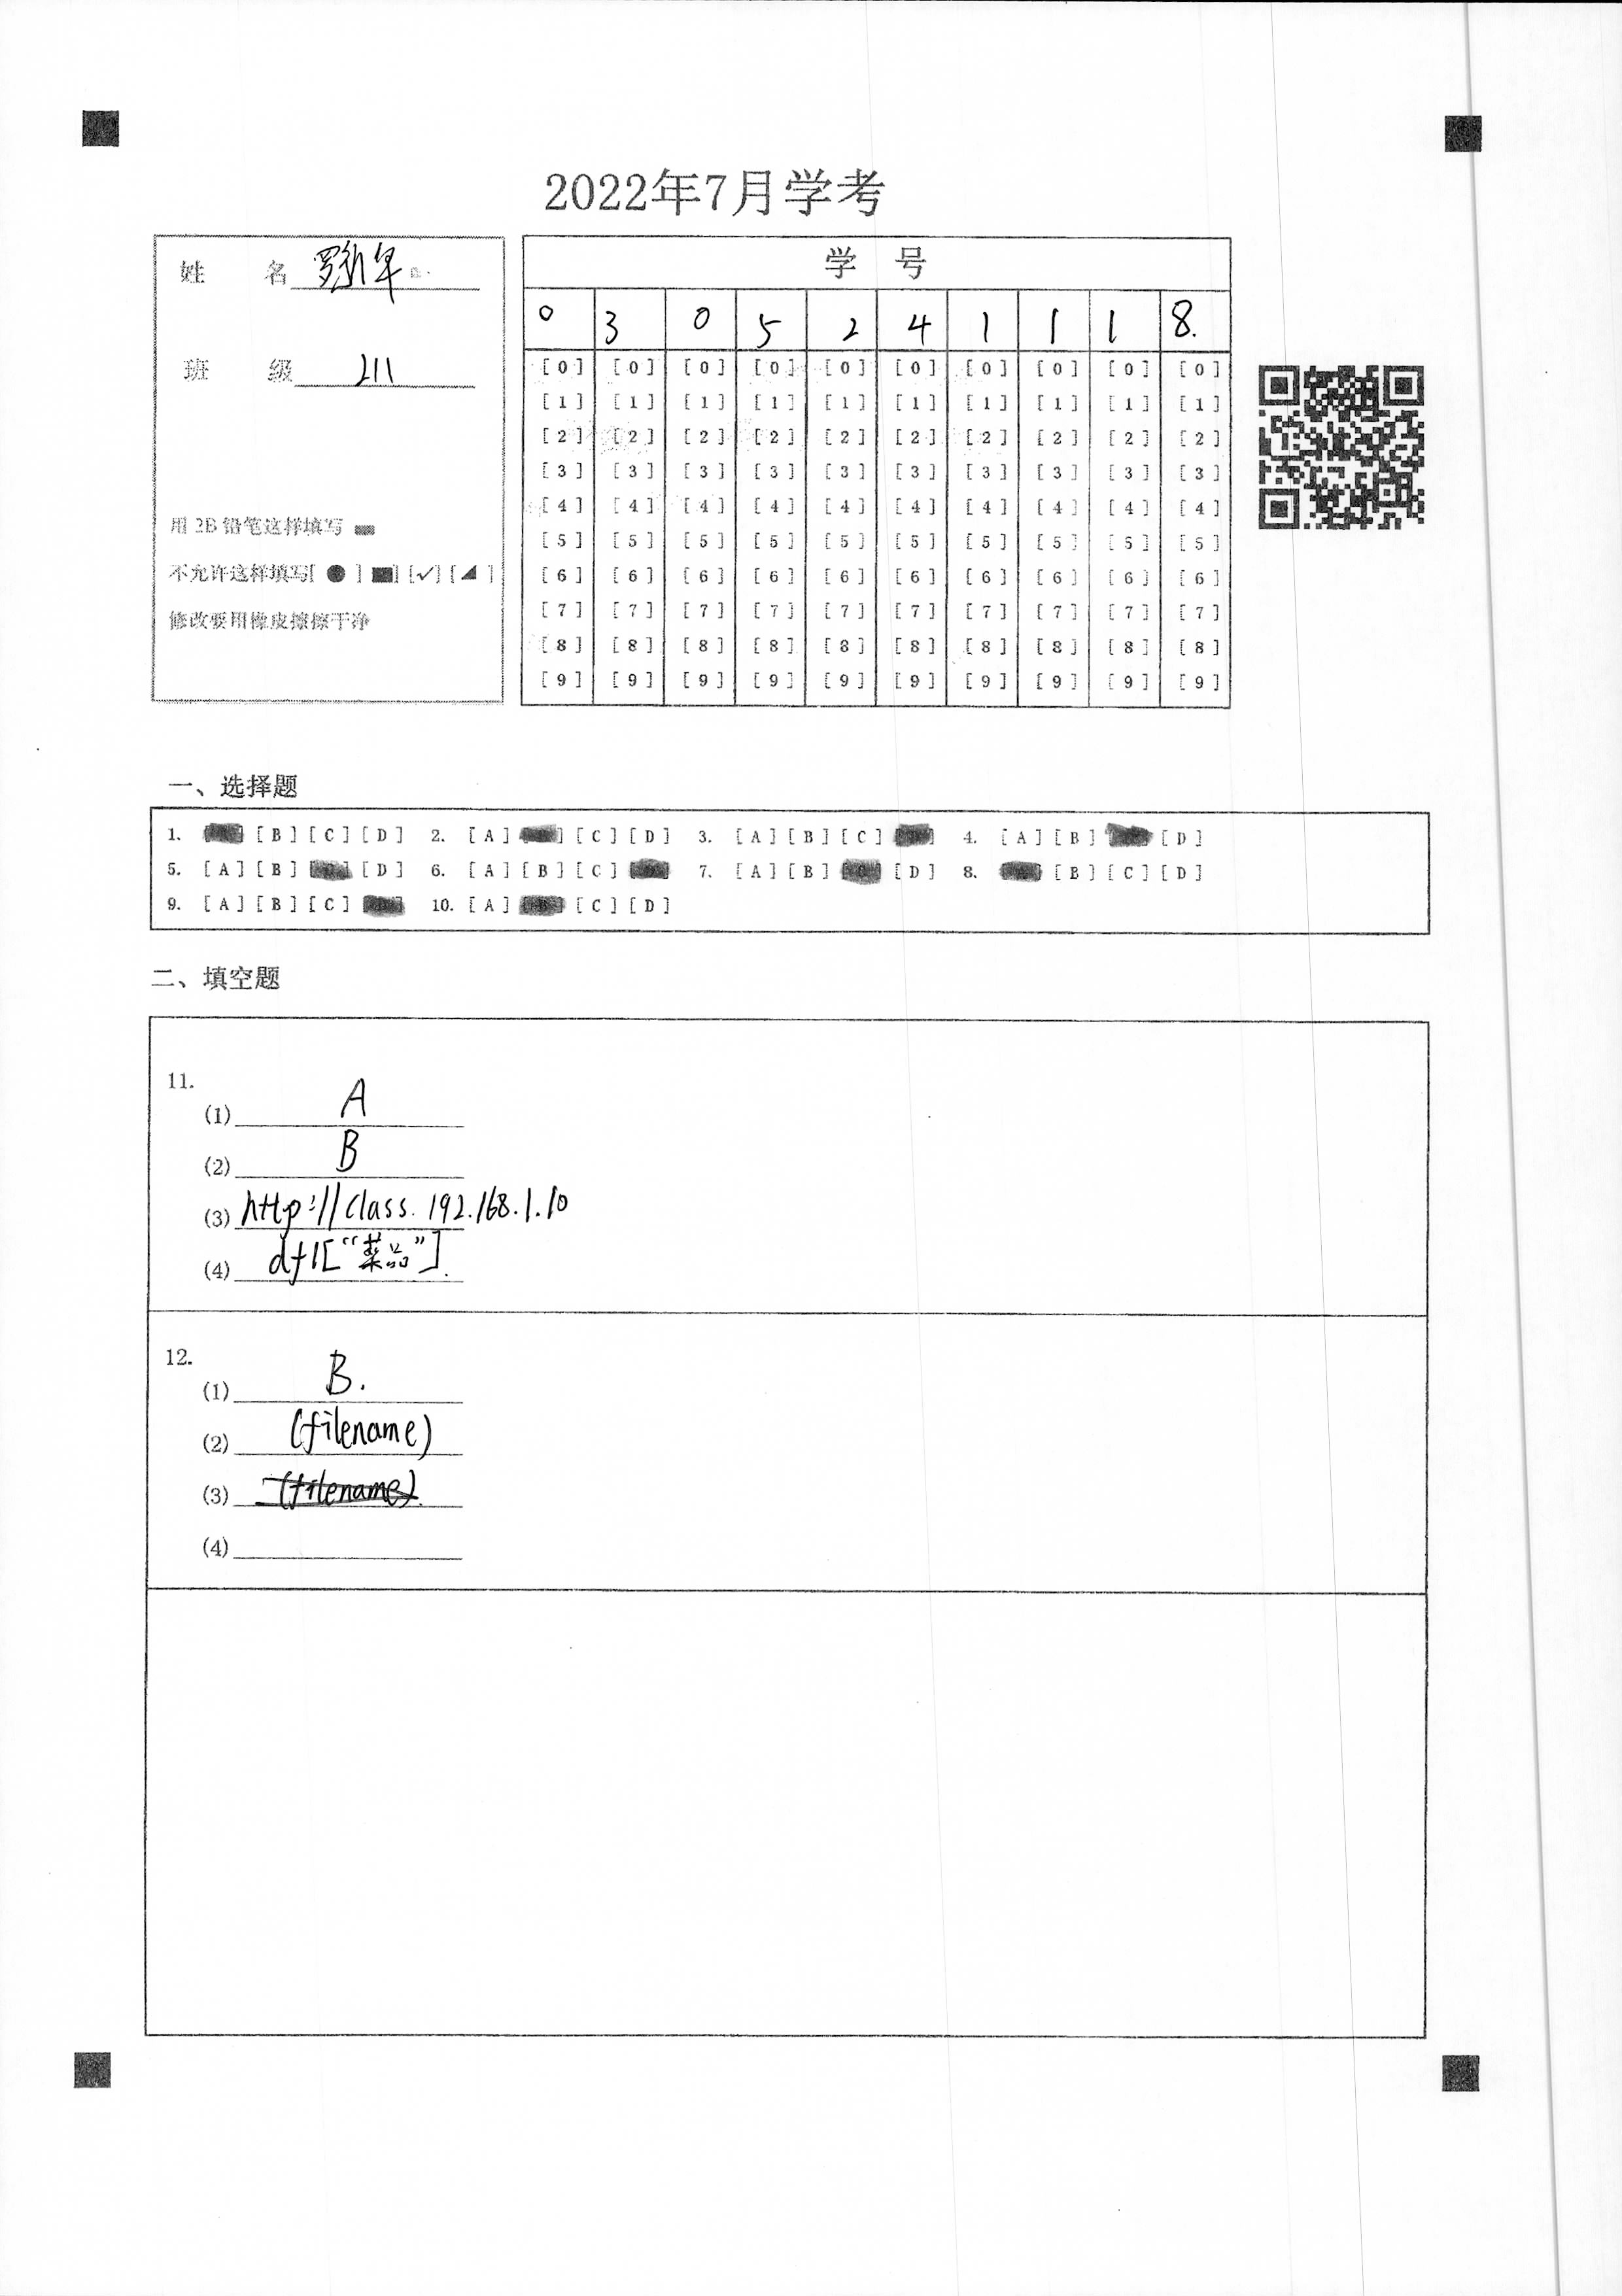 2022年7月学考
姓 名 罗新年
班 级 211
用 2B 铅笔这样填写
不允许这样填写[ ● ] [■] [✓] [◢ ]
修改要用橡皮擦擦干净
学 号
0 3 0 5 2 4 1 1 1 8.
[0] [0] [0] [0] [0] [0] [0] [0] [0] [0]
[1] [1] [1] [1] [1] [1] [1] [1] [1] [1]
[2] [2] [2] [2] [2] [2] [2] [2] [2] [2]
[3] [3] [3] [3] [3] [3] [3] [3] [3] [3]
[4] [4] [4] [4] [4] [4] [4] [4] [4] [4]
[5] [5] [5] [5] [5] [5] [5] [5] [5] [5]
[6] [6] [6] [6] [6] [6] [6] [6] [6] [6]
[7] [7] [7] [7] [7] [7] [7] [7] [7] [7]
[8] [8] [8] [8] [8] [8] [8] [8] [8] [8]
[9] [9] [9] [9] [9] [9] [9] [9] [9] [9]
一、选择题
1. [B] [C] [D] 2. [A] [C] [D] 3. [A] [B] [C] 4. [A] [B] [D]
5. [A] [B] [D] 6. [A] [B] [C] 7. [A] [B] [D] 8. [B] [C] [D]
9. [A] [B] [C] 10. [A] [C] [D]
二、填空题
11.
(1) A
(2) B
(3) http://class.192.168.1.10
(4) df1["菜品"].
12.
(1) B.
(2) (filename)
(3) (filename).
(4)